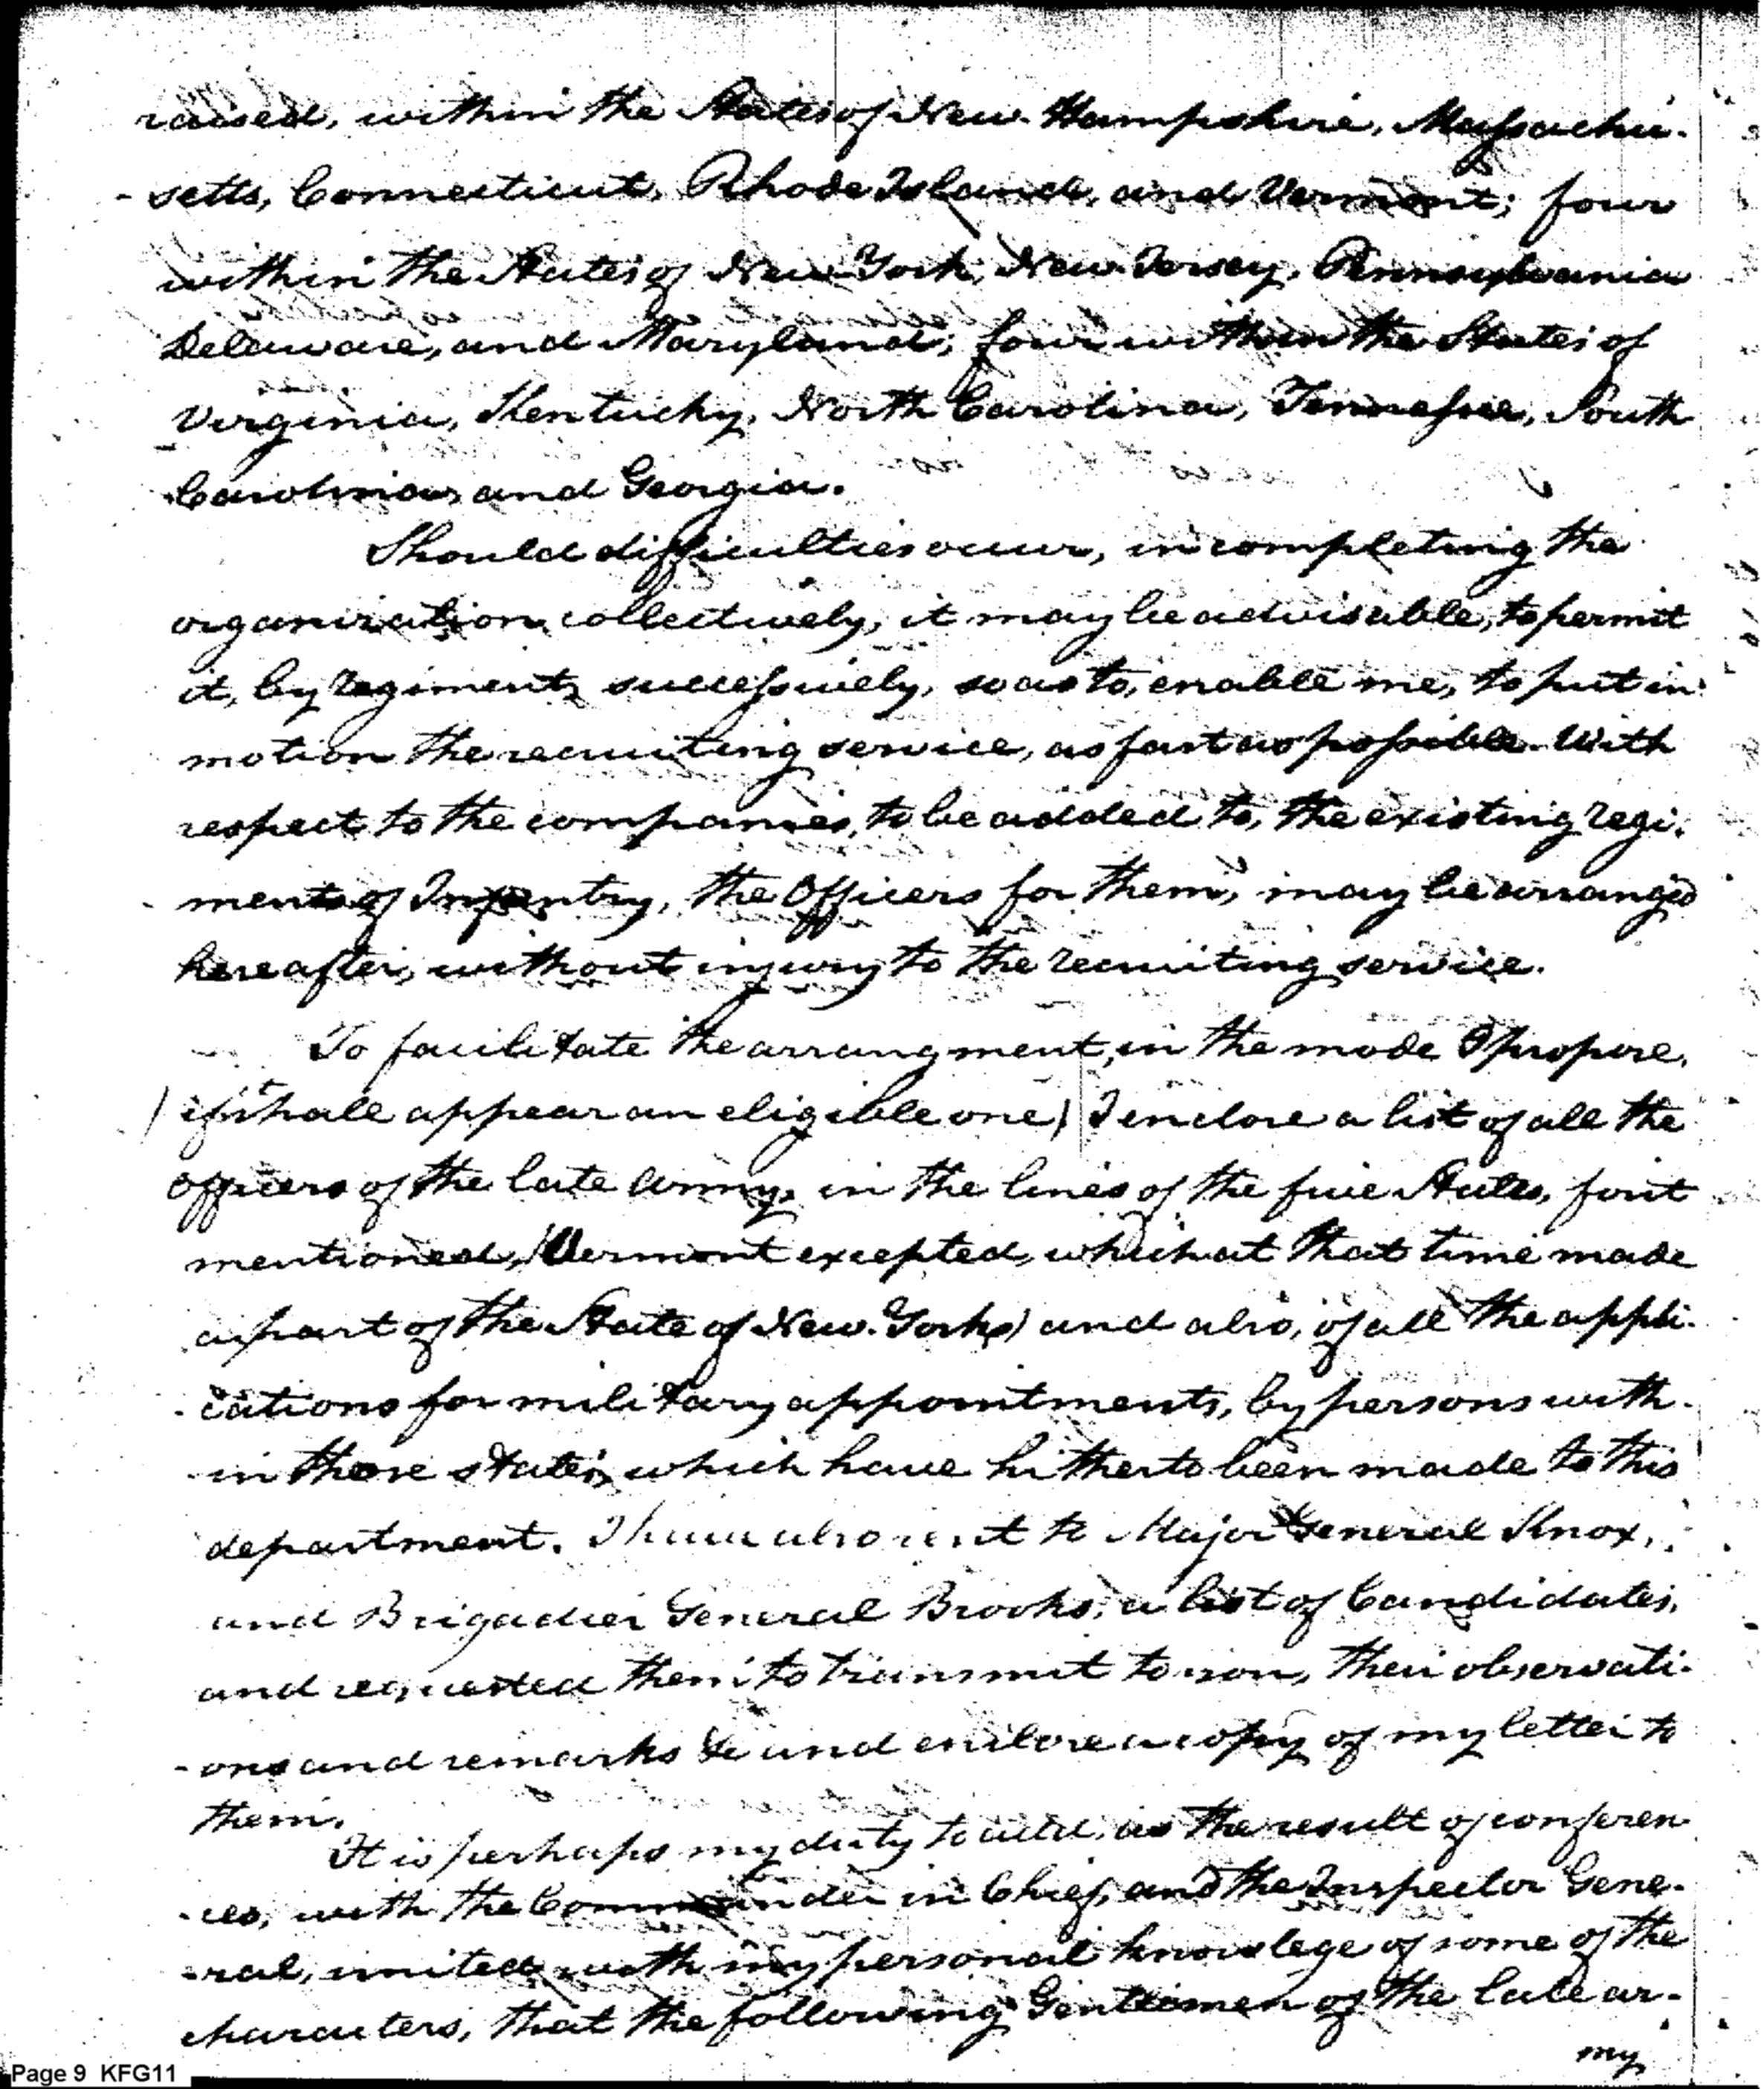 raised, within the States of New-Hampshire, Massachu-
- setts, Connecticut, Rhode Island, and Vermont; four
within the States of New-York, New-Jersey, Pennsylvania
Delaware, and Maryland; four within the States of
Virginia, Kentucky, North Carolina, Tennessee, South
Carolina, and Georgia.
Should difficulties occur, in completing the
organization collectively, it may be advisable, to permit
it, by regiments successively, so as to, enable me, to put in
motion the recruiting service, as fast as possible. With
respect to the companies, to be added to, the existing regi-
- ments of Infantry, the Officers for them, may be arranged
hereafter, without injury to the recruiting service.
To facilitate the arrangment, in the mode I propose,
(if it shall appear an eligible one) I enclose a list of all the
officers of the late army, in the lines of the five States, first
mentioned, (Vermont excepted, which at that time made
a part of the State of New-York) and also, of all the appli-
- cations for military appointments, by persons with-
- in those states, which have hitherto been made to this
department. I have also sent to Major General Knox,
and Brigadier General Brooks, a list of Candidates,
and requested them to transmit to you, their observati-
- ons and remarks &c and enclose a copy of my letter to
them.
It is perhaps my duty to add, as the result of conferen
- ces, with the Commander in Chief, and the Inspector Gene-
- ral, united with my personal knowlege of some of the
characters, that the following Gentlemen of the late ar-
my
Page 9 KFG11